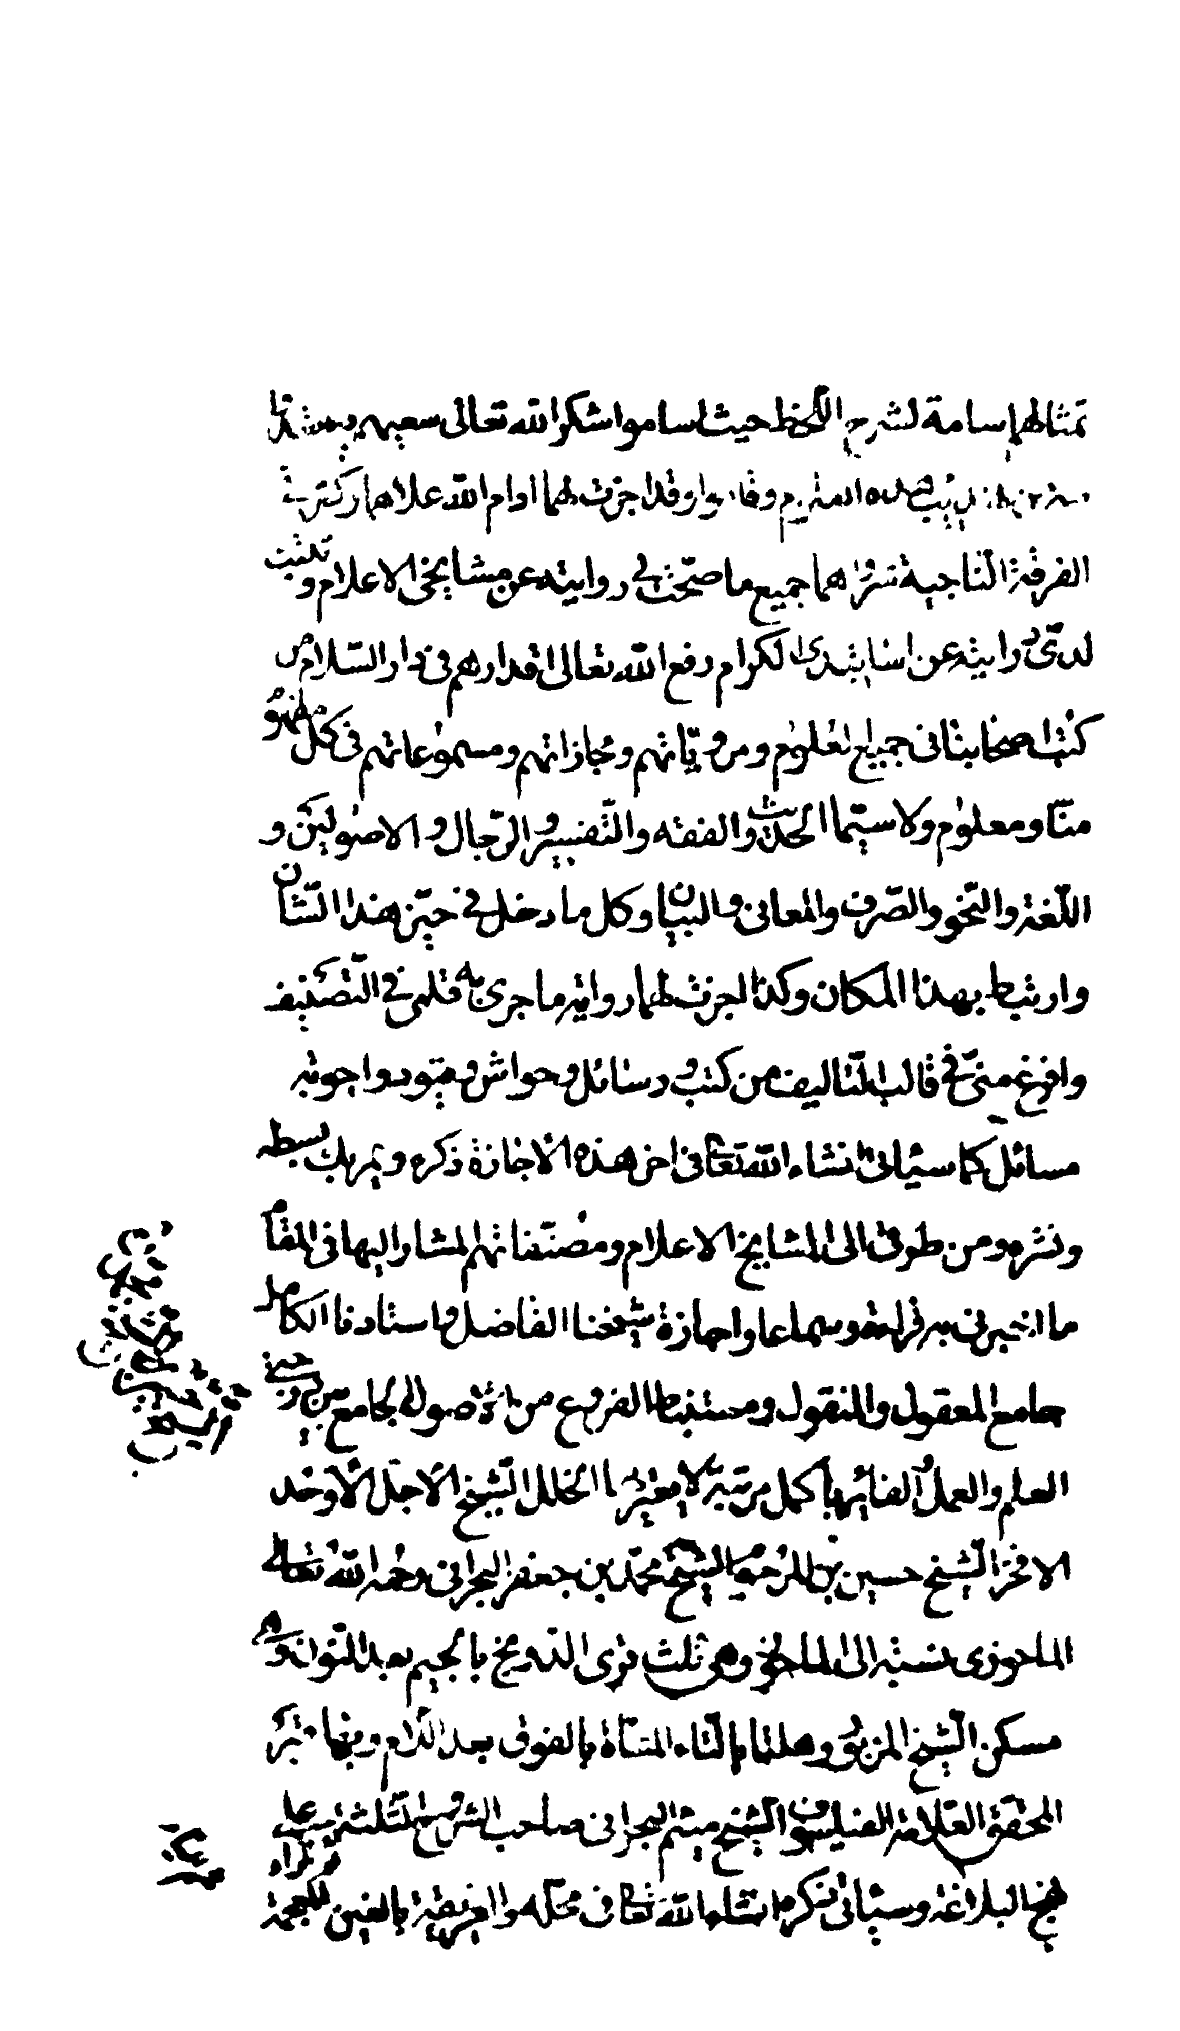 تمثالهما إسامة لشرح اللحظ حيث اساموا شكر الله تعالى سعيهم
وقد اجزت لهما ادام الله علاهما وكثر في
الفرقة الناجية شرواهما جميع ما صحت لي روايته عن مشايخي الاعلام وثبت
لدى درايته عن اساتيدى الكرام رفع الله تعالى اقدارهم في دار السلام من
كتب اصحابنا في جميع العلوم ومروياتهم ومجازاتهم ومسموعاتهم في كل مفهوم
منا ومعلوم ولا سيما الحديث والفقه والتفسير والرجال والاصولين و
اللغة والنحو والصرف والمعاني والبيان وكل ما دخل في حيز هذا الشأن
وارتبط بهذا المكان وكذا اجزت لهما رواية ما جرى به قلمي في التصنيف
وافرغ مني في قالب التاليف من كتب ورسائل وحواش وقيود واجوبة
مسائل كما سيأتي انشاء الله تعالى في اخر هذه الاجازة ذكره ويمر بك بسطه
ونشره ومن طرقي الى المشايخ الاعلام ومصنفاتهم المشار اليها في المقام
ما اخبرني به قراءة وسماعا واجازة شيخنا الفاضل واستادنا الكامل
جامع المعقول والمنقول ومستنبط الفروع من الاصول الجامع بين درجتي
العلم والعمل الفائز باكمل مرتبة لا يعتريها الخلل الشيخ الاجل الأوحد
الافخر الشيخ حسين بن المرحوم الشيخ محمد بن جعفر البحراني رحمه الله تعالى
الماحوزى نسبة الى الماحوز وهي ثلث قرى الدونج بالجيم بعد النون وهي
مسكن الشيخ المزبور وهلتا بالتاء المثناة بالفوق بعد اللام وبها قبر
المحقق العلامة الفيلسوف الشيخ ميثم البحراني صاحب الشروح الثلثة على
نهج البلاغة وسيأتي ذكره انشاء الله تعالى في محله والغريفة بالغين المعجمة